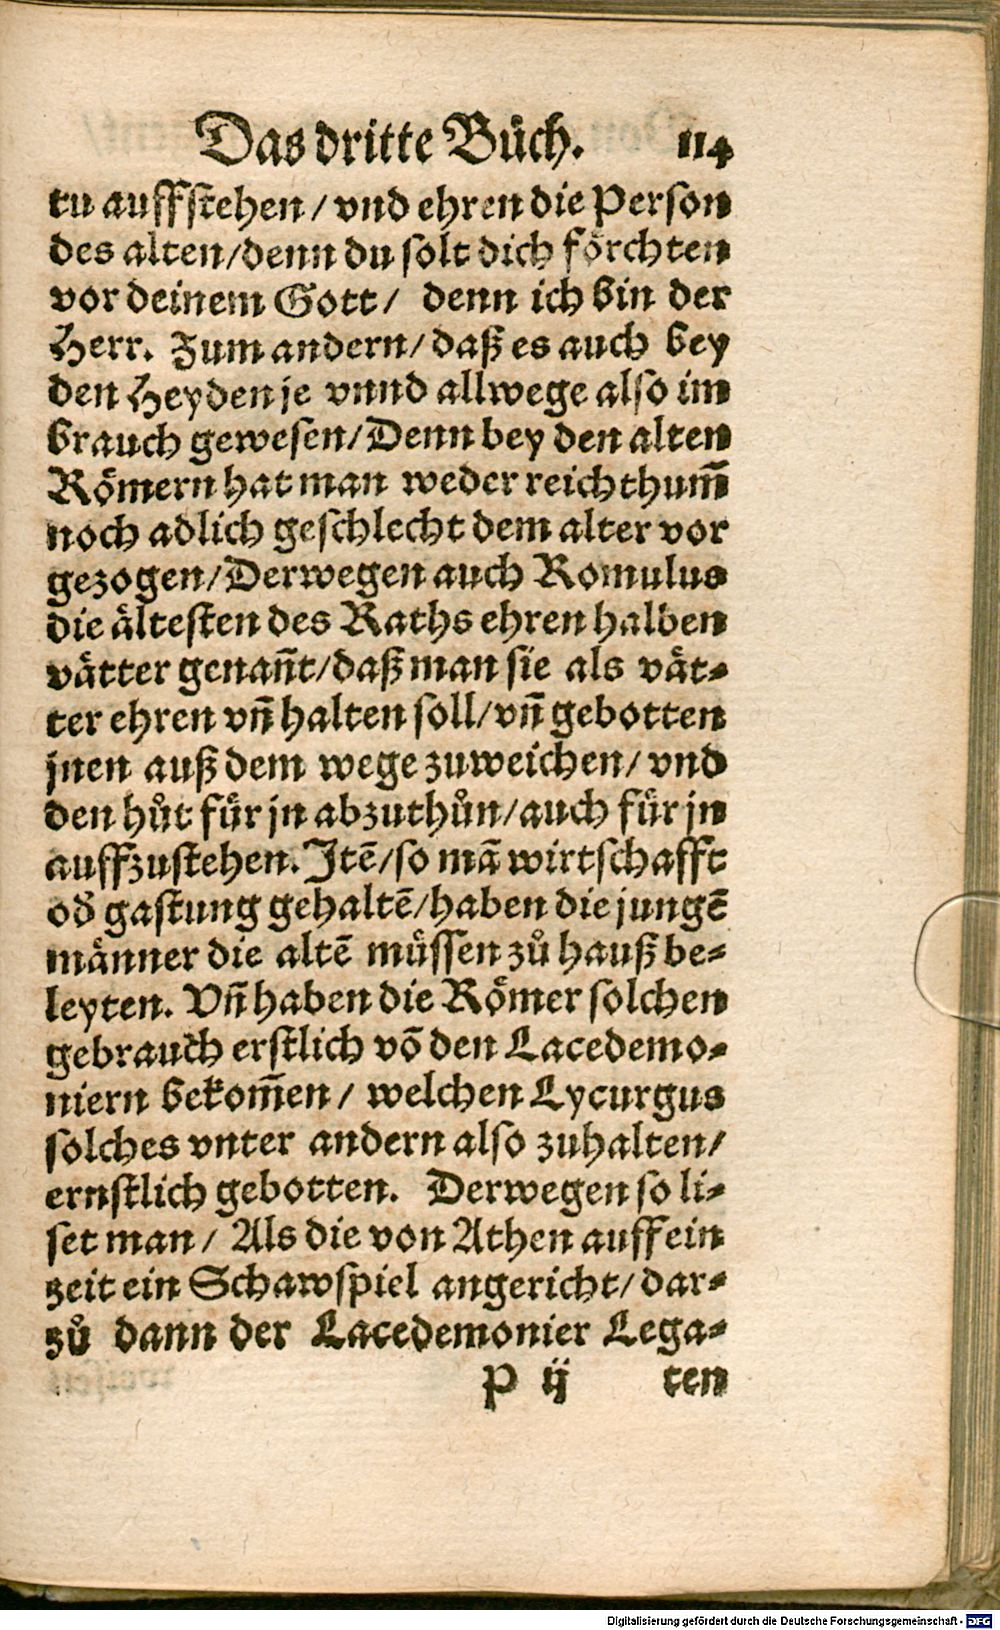 Das dritte Buͤch. 114
tu auffstehen / vnd ehren die Person
des alten / denn du solt dich foͤrchten
vor deinem Gott / denn ich bin der
Herr. Zum andern / daß es auch bey
den Heyden je vnnd allwege also im
brauch gewesen / Denn bey den alten
Roͤmern hat man weder reichthum̃
noch adlich geschlecht dem alter vor
gezogen / Derwegen auch Romulus
die aͤltesten des Raths ehren halben
vaͤtter genañt / daß man sie als vaͤt⸗
ter ehren vñ halten soll / vñ gebotten
jnen auß dem wege zuweichen / vnd
den huͦt fuͤr jn abzuthuͦn / auch fuͤr jn
auffzustehen. Jtẽ / so mã wirtschafft
od̕ gastung gehaltẽ / haben die jungẽ
maͤnner die altẽ muͤssen zuͦ hauß be⸗
leyten. Vñ haben die Roͤmer solchen
gebrauch erstlich võ den Lacedemo⸗
niern bekom̃en / welchen Lycurgus
solches vnter andern also zuhalten /
ernstlich gebotten. Derwegen so li⸗
set man / Als die von Athen auff ein
zeit ein Schawspiel angericht / dar⸗
zuͦ dann der Lacedemonier Lega⸗
P ij ten
Digitalisierung gefördert durch die Deutsche Forschungsgemeinschaft - DFG